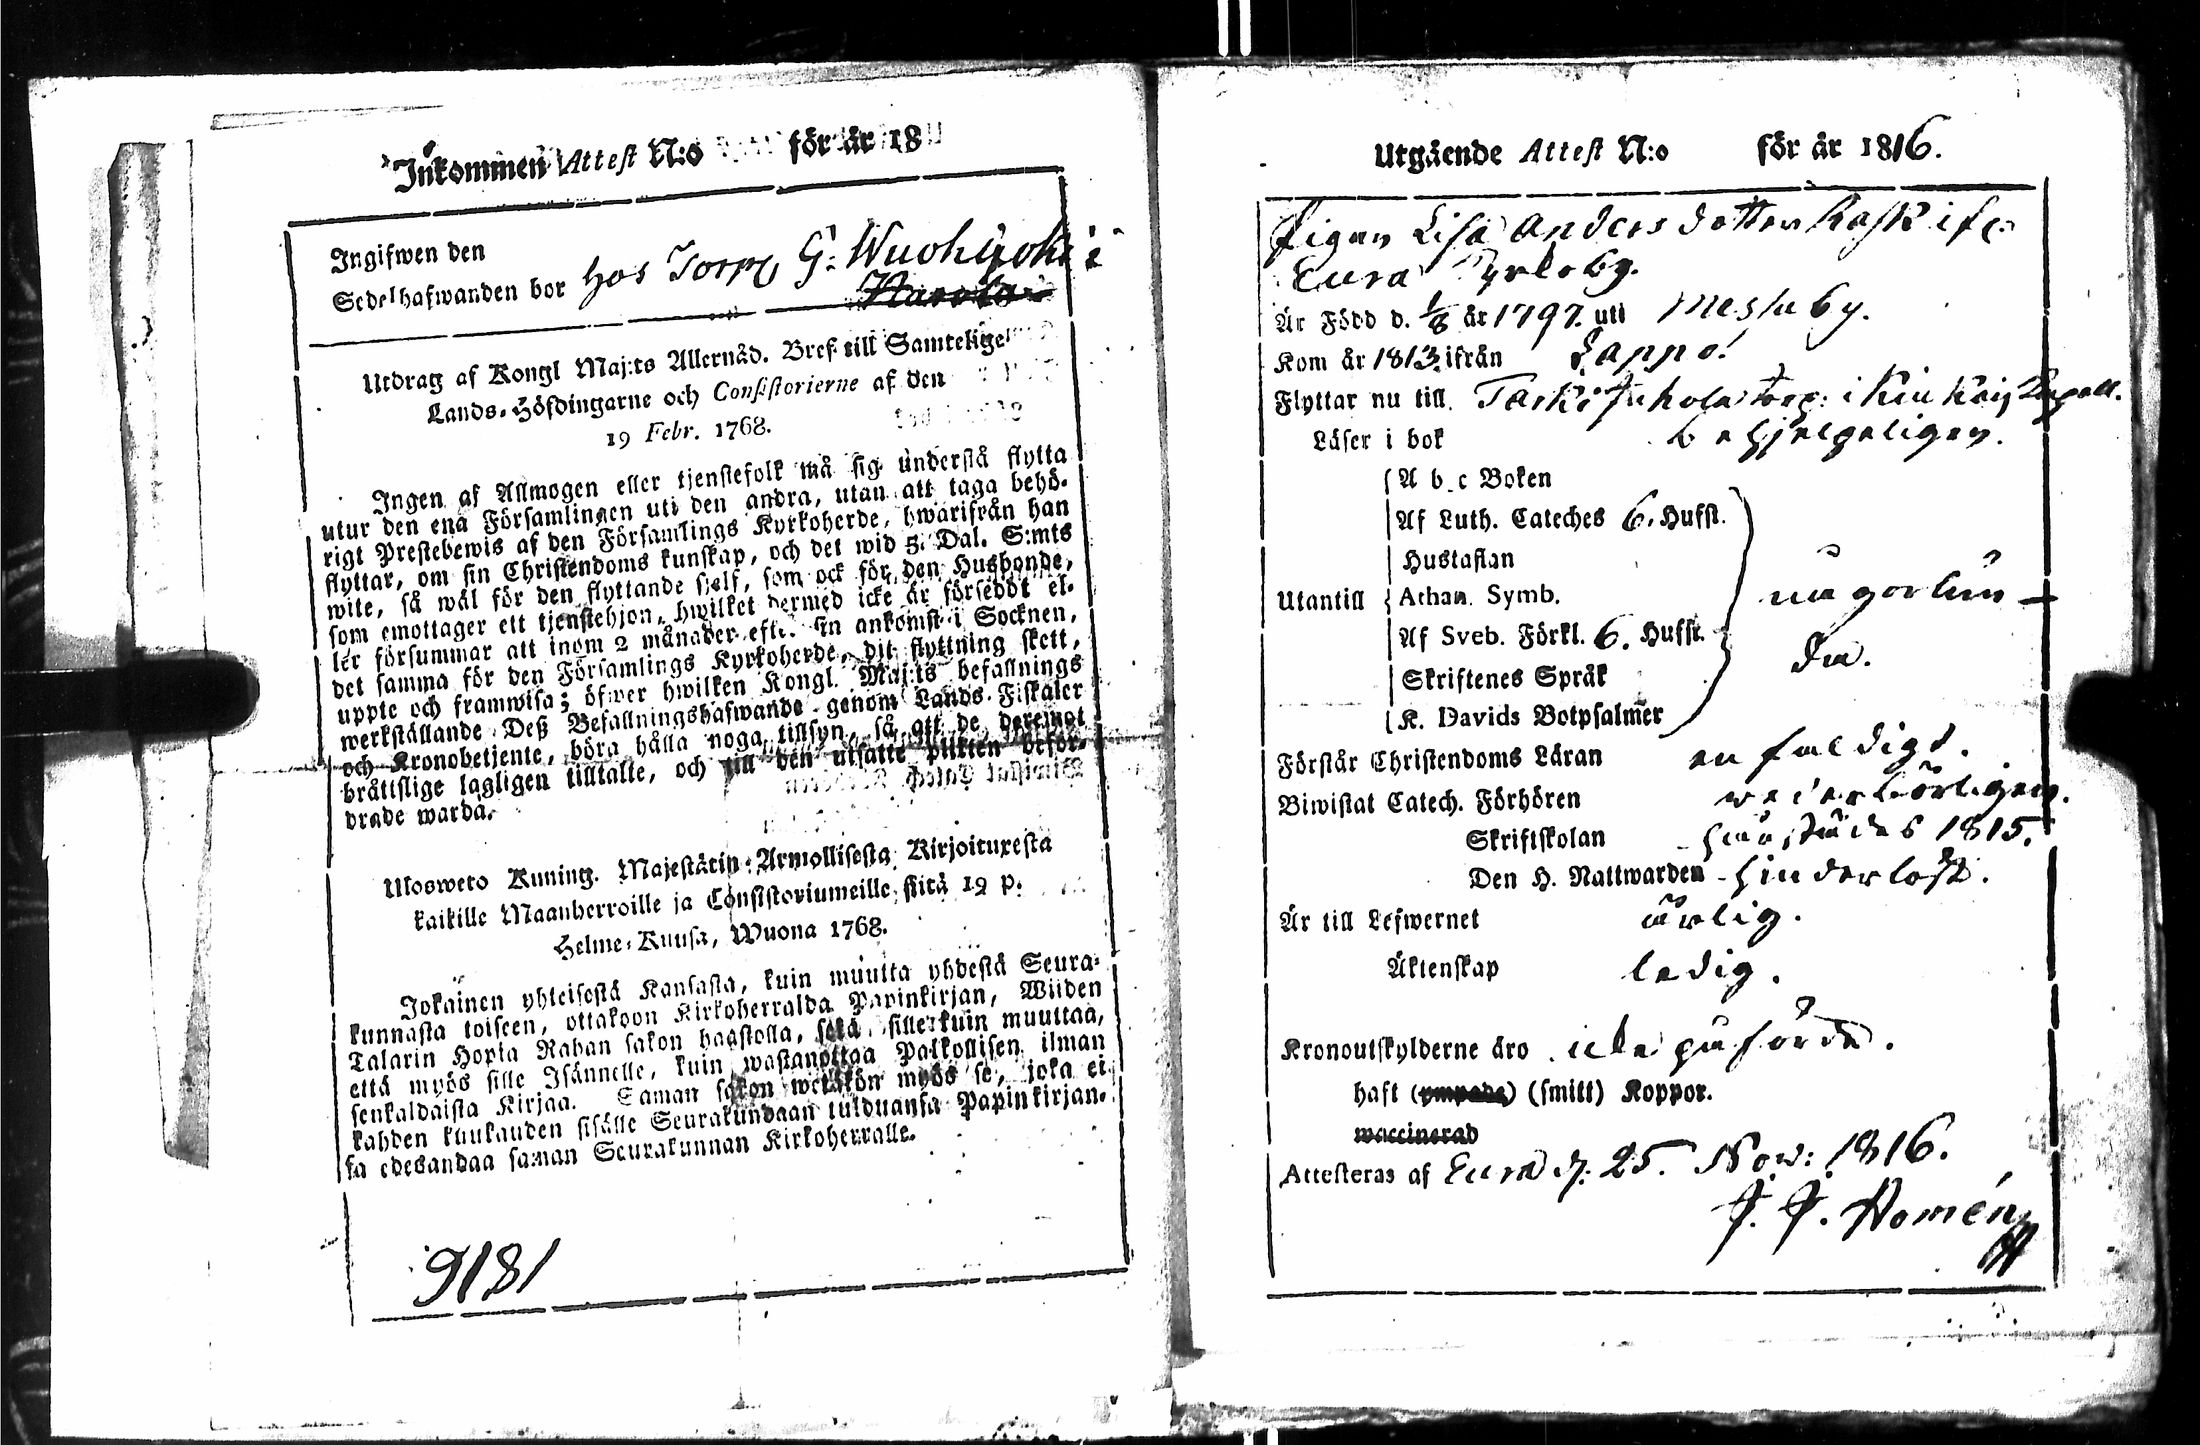 Inkommen Attest N:o för år 18
Ingifwen den
Sedelhafwanden bor hos Torp G: Wuohijoki i
Utdrag af Kongl Maj:ts Allernåd. Bref till Samtelige
Lands-Höfdingarne och Consistorierne af den
19 Febr. 1768.
Ingen af Allmogen eller tjenstefolk må sig understå flytta
utur den ena Församlingen uti den andra, utan att taga behö-
rigt Prestebewis af den Församlings Kyrkoherde, hwarifrån han
flyttar, om sin Christendoms kunskap, och det wid 5 Dal. S:mts
wite, så wäl för den flyttande sjelf, som ock för den Husbonde,
som emottager ett tjenstehjon, hwilket dermed icke är försedt el-
ler försummar att inom 2 månader efter sin ankomst i Socknen,
det samma för den Församlings Kyrkoherde, dit flyttning skett,
uppte och framwisa; öfwer hwilken Kongl. Maj:ts befallnings
werkställande Deß Befallningshafwande genom Lands-Fiskaler
och Kronobetjente, böra hålla noga tillsyn, så att de deremot
bråttslige lagligen tilltalte, och till den utsatte plikten befor-
drade warda.
Ulosweto Kuning. Majestätin Armollisesta Kirjoituxesta
kaikille Maanherroille ja Consistoriumeille, siitä 19 p.
Helme-Kuusa, Wuona 1768.
Jokainen yhteisestä Kansasta, kuin muutta yhdestä Seura-
kunnasta toiseen, ottakoon Kirkoherralda Papinkirjan, Wiiden
Talarin Hopia Rahan sakon haastolla, sekä sille kuin muuttaa,
että myös sille Isännelle, kuin wastanottaa Palkollisen ilman
senkaldaista Kirjaa. Saman sakon wetäkön myös se, joka ei
kahden kuukauden sisälle Seurakundaan tulduansa Papinkirjan-
sa edesandaa saman Seurakunnan Kirkoherralle.
9181
Utgående Attest N:o för år 1816.
Pigan Lisa Andersdotter Kask ifr:
Eura Kyrkoby.
Är Född d. 1/8 år 1797. uti Messuby.
Kom år 1813 ifrån Lappo.
Flyttar nu till Juhola torp: i Kiukais Capell.
Läser i bok behjelpeligen.
A b c Boken
Af Luth. Cateches 6. Hufst.
Hustaflan
Utantill Athan. Symb. någorlun-
Af Sveb. Förkl. 6. Hufst. da.
Skriftenes Språk
K. Davids Botpsalmer
Förstår Christendoms Läran enfaldigt.
Biwistat Catech. Förhören wederbörligen.
Skriftskolan 1815.
Den H. Nattwarden hinderlöst.
Är till Lefwernet ärlig.
Äktenskap ledig.
Kronoutskylderne äro icke påförda.
haft (ympade) (smitt) Koppor.
waccinerad
Attesteras af Eura d. 25. Nov: 1816.
J. J. Homén